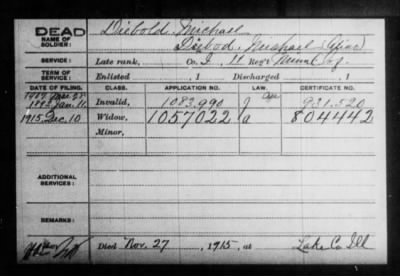 DEAD
NAME OF SOLDIER:
Diebold, Michael
Diebod, Michael (Alias)
SERVICE: Late rank, Co. I, 11 Reg't Minn. Inf.
TERM OF SERVICE: Enlisted , 1 Discharged , 1
DATE OF FILING. CLASS. APPLICATION NO. LAW. CERTIFICATE NO.
1907 Mar. 25
1892 Jan. 11 Invalid, 1083.990 J Age 931.520
1915 Dec. 10 Widow, 1057022 a 804442
Minor,
ADDITIONAL SERVICES:
REMARKS:
Died Nov. 27, 1915, at Lake Co Ill